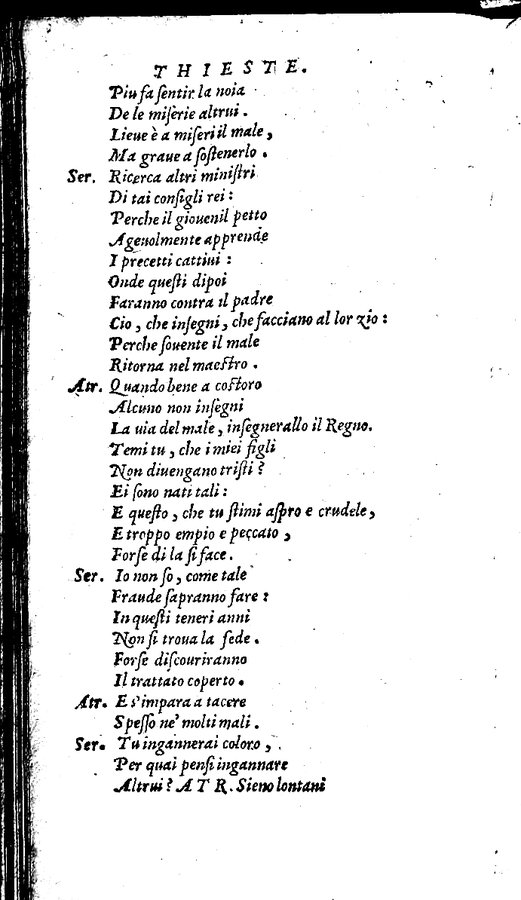 THIESTE.
Piu fa sentir la noia
De le miserie altrui.
Lieue è a miseri il male,
Ma graue a sostenerlo.
Ser. Ricerca altri ministri
Di tai consigli rei:
Perche il giouenil petto
Ageuolmente apprende
I precetti cattiui:
Onde questi dipoi
Faranno contra il padre
Cio, che insegni, che facciano al lor zio:
Perche souente il male
Ritorna nel maestro.
Atr. Quando bene a costoro
Alcuno non insegni
La uia del male, insegnerallo il Regno.
Temi tu, che i miei figli
Non diuengano tristi?
Ei sono nati tali:
E questo, che tu stimi aspro e crudele,
E troppo empio e peccato,
Forse di la si face.
Ser. Io non so, come tale
Fraude sapranno fare:
In questi teneri anni
Non si troua la fede.
Forse discouriranno
Il trattato coperto.
Atr. E s'impara a tacere
Spesso ne' molti mali.
Ser. Tu ingannerai coloro,
Per quai pensi ingannare
Altrui? ATR. Sieno lontani